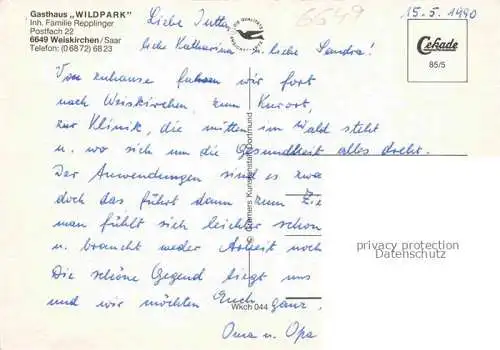 Gasthaus „WILDPARK"
Inh. Familie Repplinger
Postfach 22
6649 Weiskirchen/Saar
Telefon: (0 68 72) 68 23
6649
15.5.1990
Cekade
85/5
Liebe Jutta,
liebe Katharina u. liebe Sandra!
Von zuhause fuhren wir fort
nach Weiskirchen zum Kurort,
zur Klinik, die mitten im Wald steht
u. wo sich um die Gesundheit alles dreht.
Der Anwendungen sind es zwa
doch das führt dann zum Zie
man fühlt sich leichter schon
u. braucht weder Arbeit noch
Die schöne Gegend liegt uns
und wir möchten Euch ganz
Oma u. Opa
Krüners Kunstanstalt Dortmund
Wkch 044
privacy protection
Datenschutz